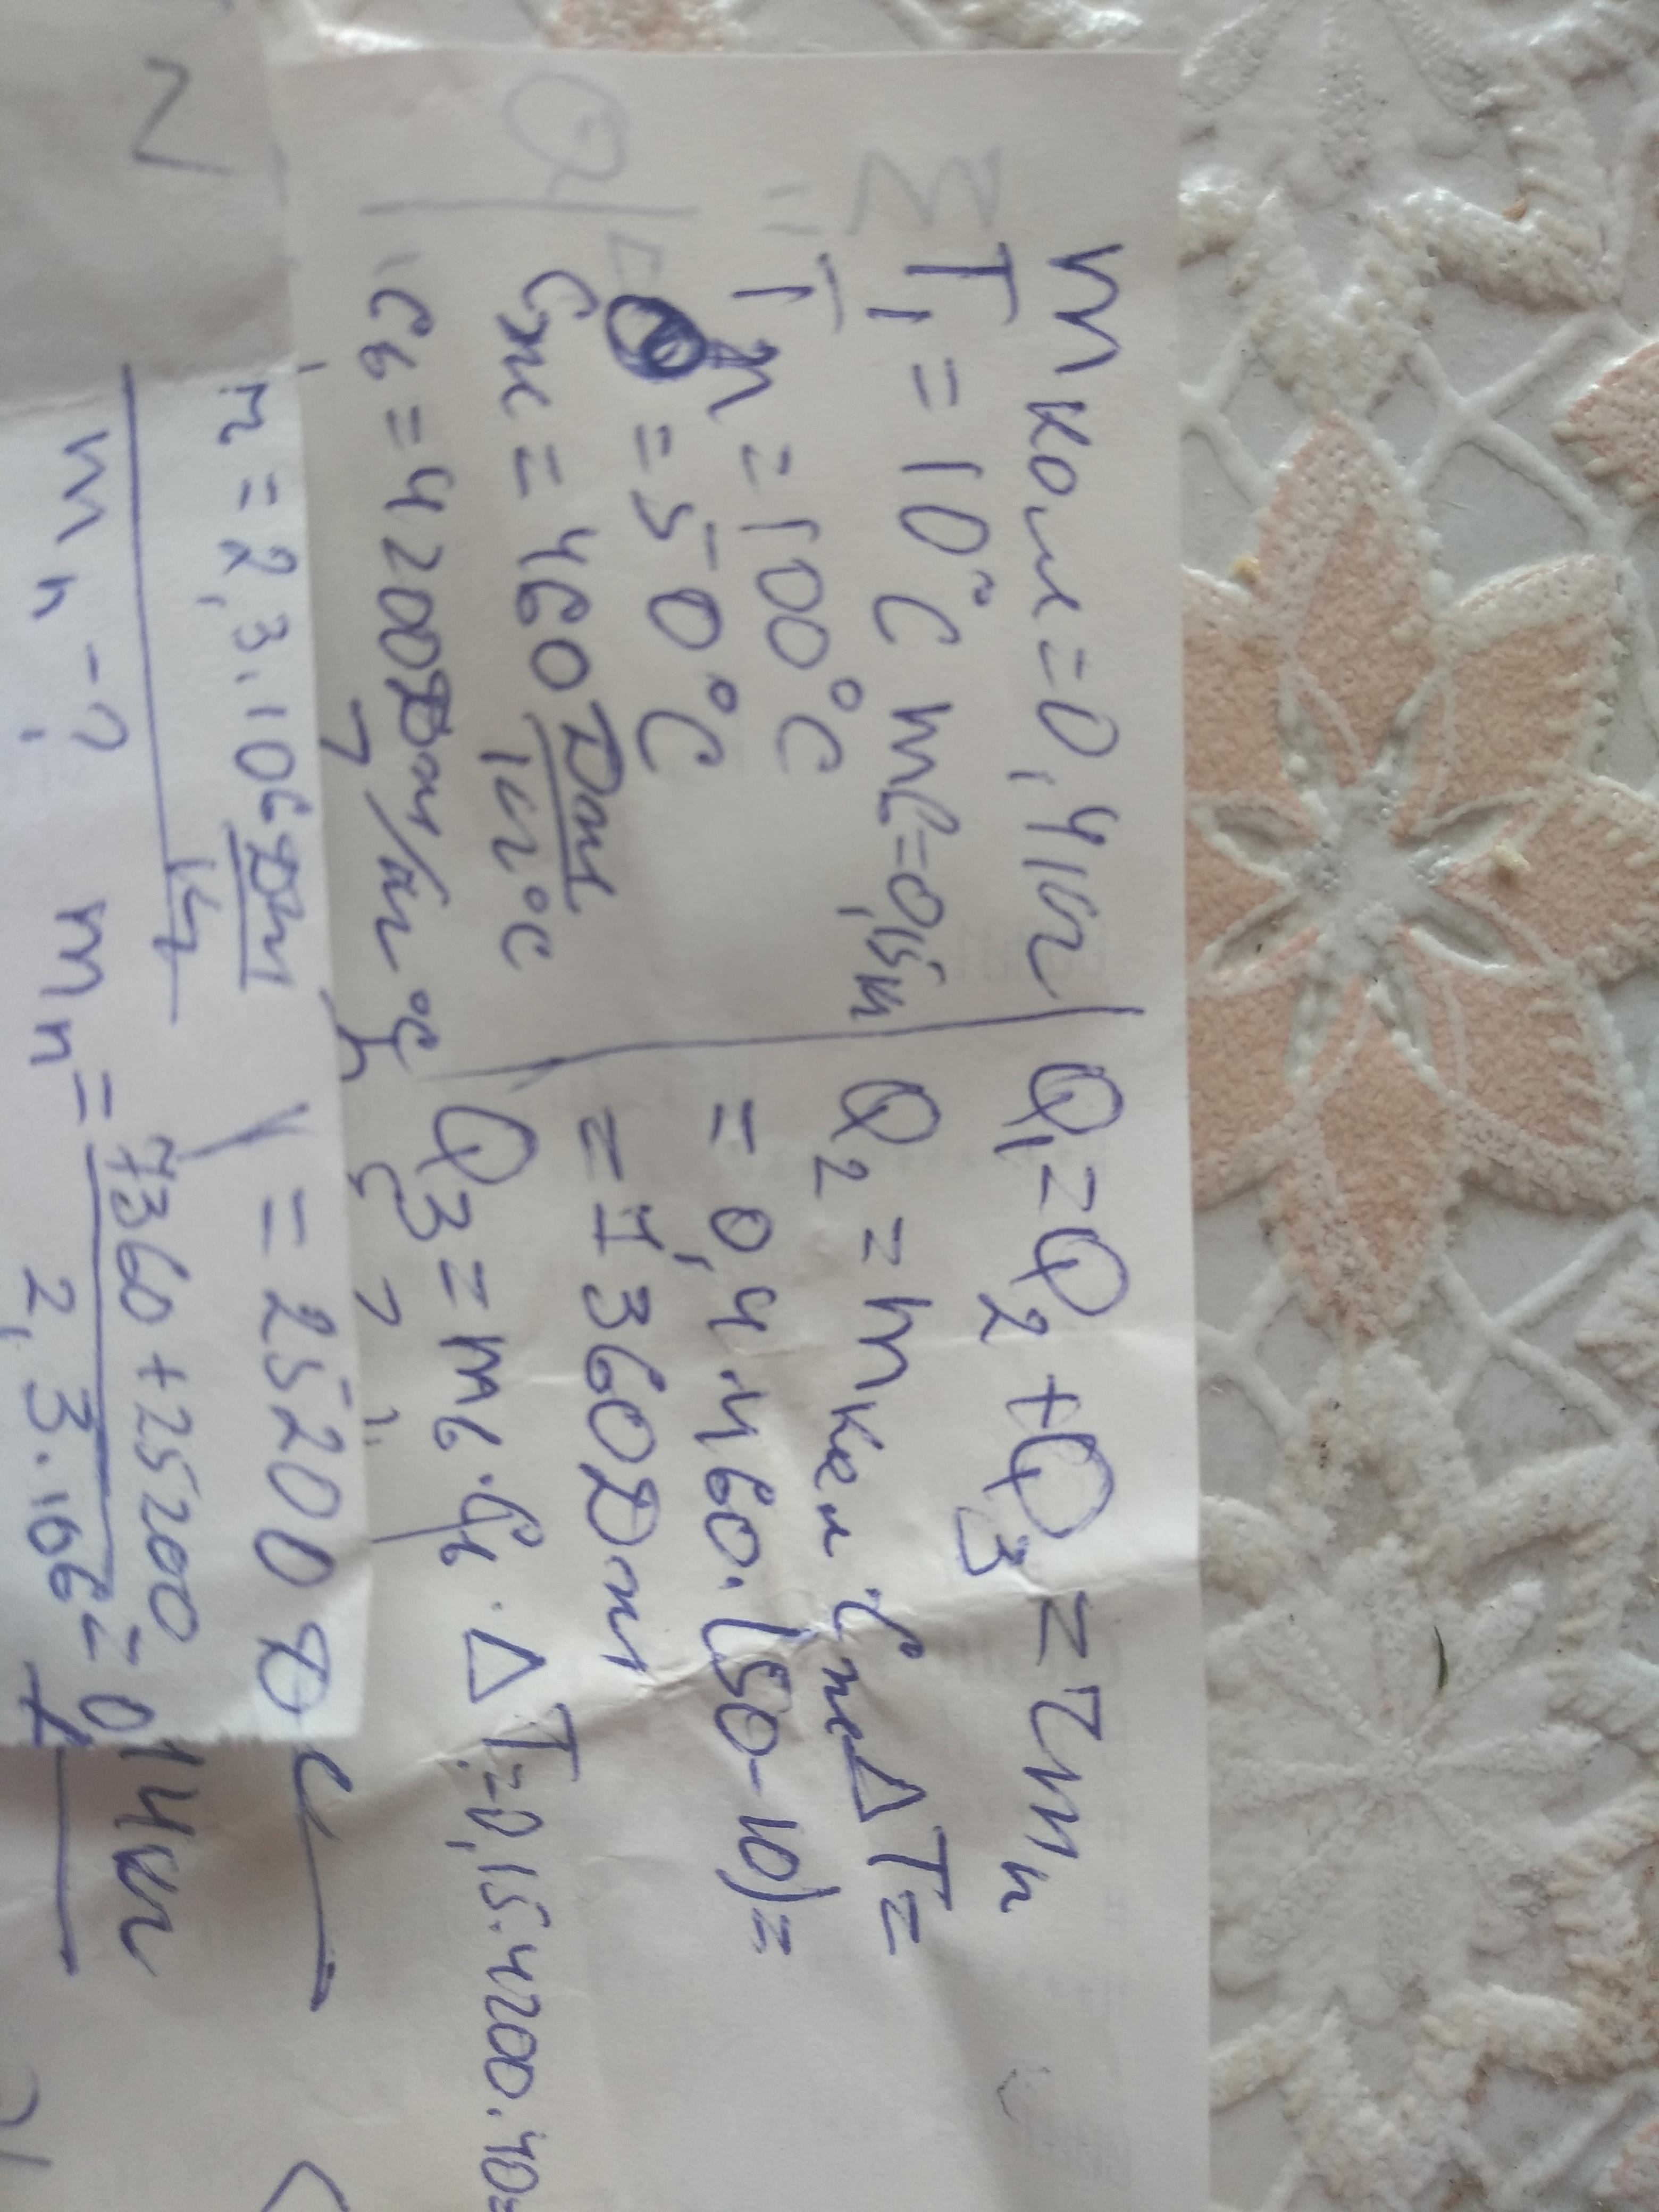 m кол = 0,4 кг
T₁ = 10°C mв = 0,15 кг
Tп = 100°C
θ = 50°C
Cж = 460 Дж/кг°C
Cв = 4200 Дж/кг°C
r = 2,3·10⁶ Дж/кг
mп - ?
Q₁ = Q₂ + Q₃ = rmп
Q₂ = m кол · Cж ΔT =
= 0,4·460·(50-10) =
= 7360 Дж
Q₃ = mв · Cв · ΔT = 0,15·4200·40=
= 25200 Дж
mп = 7360 + 25200 / 2,3·10⁶ = 0,014 кг